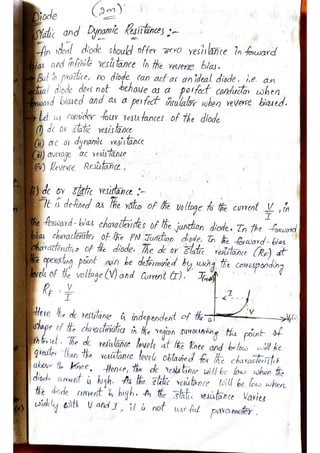 Diode (2m)
Static and Dynamic Resistances :-
An ideal diode should offer zero resistance in forward
bias and infinite resistance in the reverse bias.
→ But in practice, no diode can act as an ideal diode, i.e. an
actual diode does not behave as a perfect conductor when
forward biased and as a perfect insulator when reverse biased.
→ Let us consider four resistances of the diode
(i) dc or static resistance
(ii) ac or dynamic resistance
(iii) average ac resistance
(iv) Reverse Resistance.
(i) dc or static resistance :-
It is defined as the ratio of the voltage to the current V/I, in
the forward-bias characteristics of the junction diode. In the forward
bias characteristics of the PN Junction diode. In the forward-bias
characteristics of the diode. The dc or static resistance (RF) at
the operating point can be determined by using the corresponding
levels of the voltage (V) and Current (I).
RF = V/I
I
V
Here the dc resistance is independent of the
shape of the characteristics in the region surrounding the point of
interest. The dc resistance levels at the knee and below will be
greater than the resistance levels obtained for the characteristics
above the knee. Hence, the dc resistance will be low when the
diode current is high. As the static resistance will be low when
the diode current is high. As the static resistance varies
widely with V and I, it is not useful parameter.